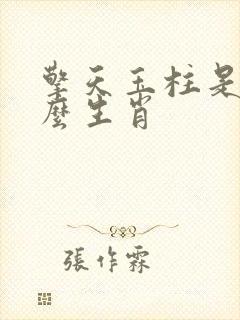 擎天玉柱是
麼生肖
張作霖